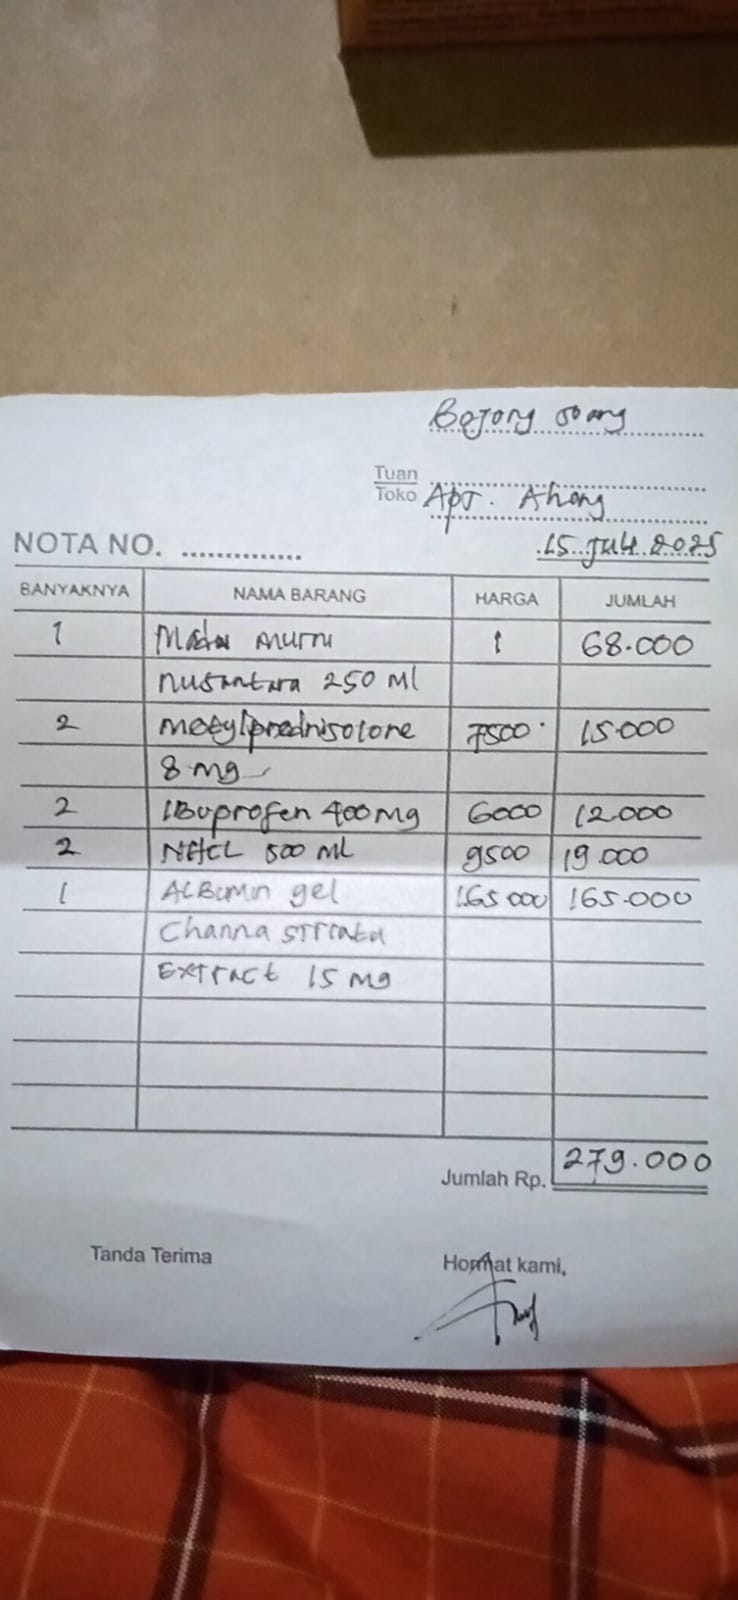 Bojong soang
Tuan
Toko Apt. Ahong
NOTA NO. ..............
15 Juli 2025
BANYAKNYA NAMA BARANG HARGA JUMLAH
1 Madu murni 1 68.000
nusantara 250 ml
2 metylprednisolone 7500 15.000
8 mg
2 IBuprofen 400 mg 6000 12.000
2 NaCL 500 ml 9500 19.000
1 ALBumin gel 165.000 165.000
Channa striata
Extract 15 mg
Jumlah Rp. 279.000
Tanda Terima Hormat kami,